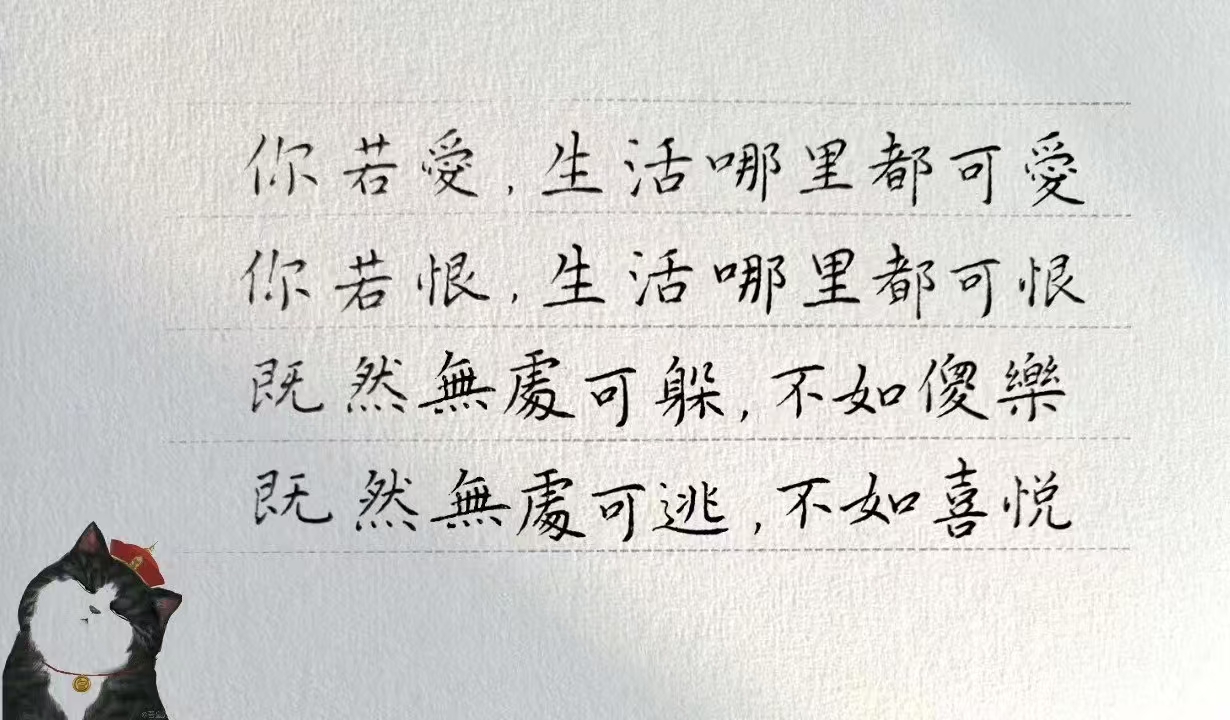 你若愛，生活哪里都可愛
你若恨，生活哪里都可恨
既然無處可躲，不如傻樂
既然無處可逃，不如喜悦